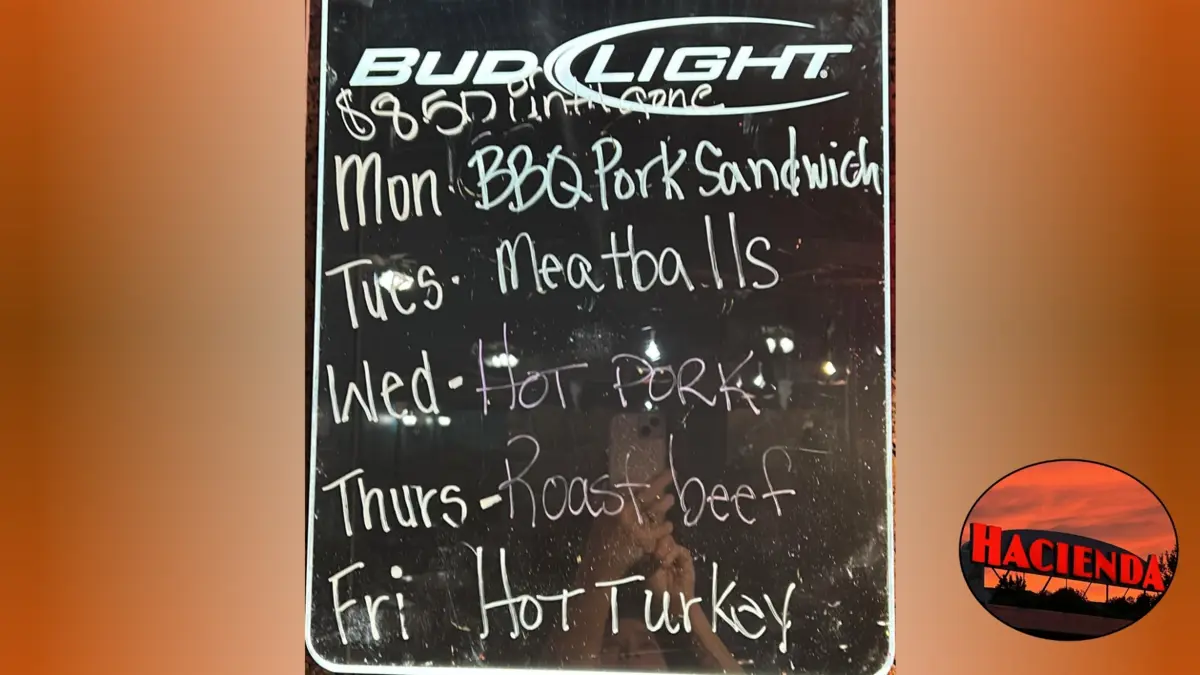 BUD LIGHT
$8.50 or until gone
Mon. BBQ Pork Sandwich
Tues. Meatballs
Wed- HOT PORK
Thurs- Roast beef
Fri Hot Turkey
HACIENDA